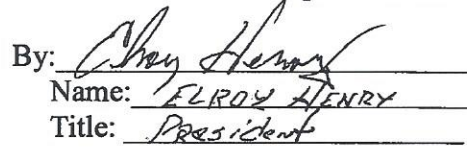 By: Elroy Henry
Name: ELROY HENRY
Title: President